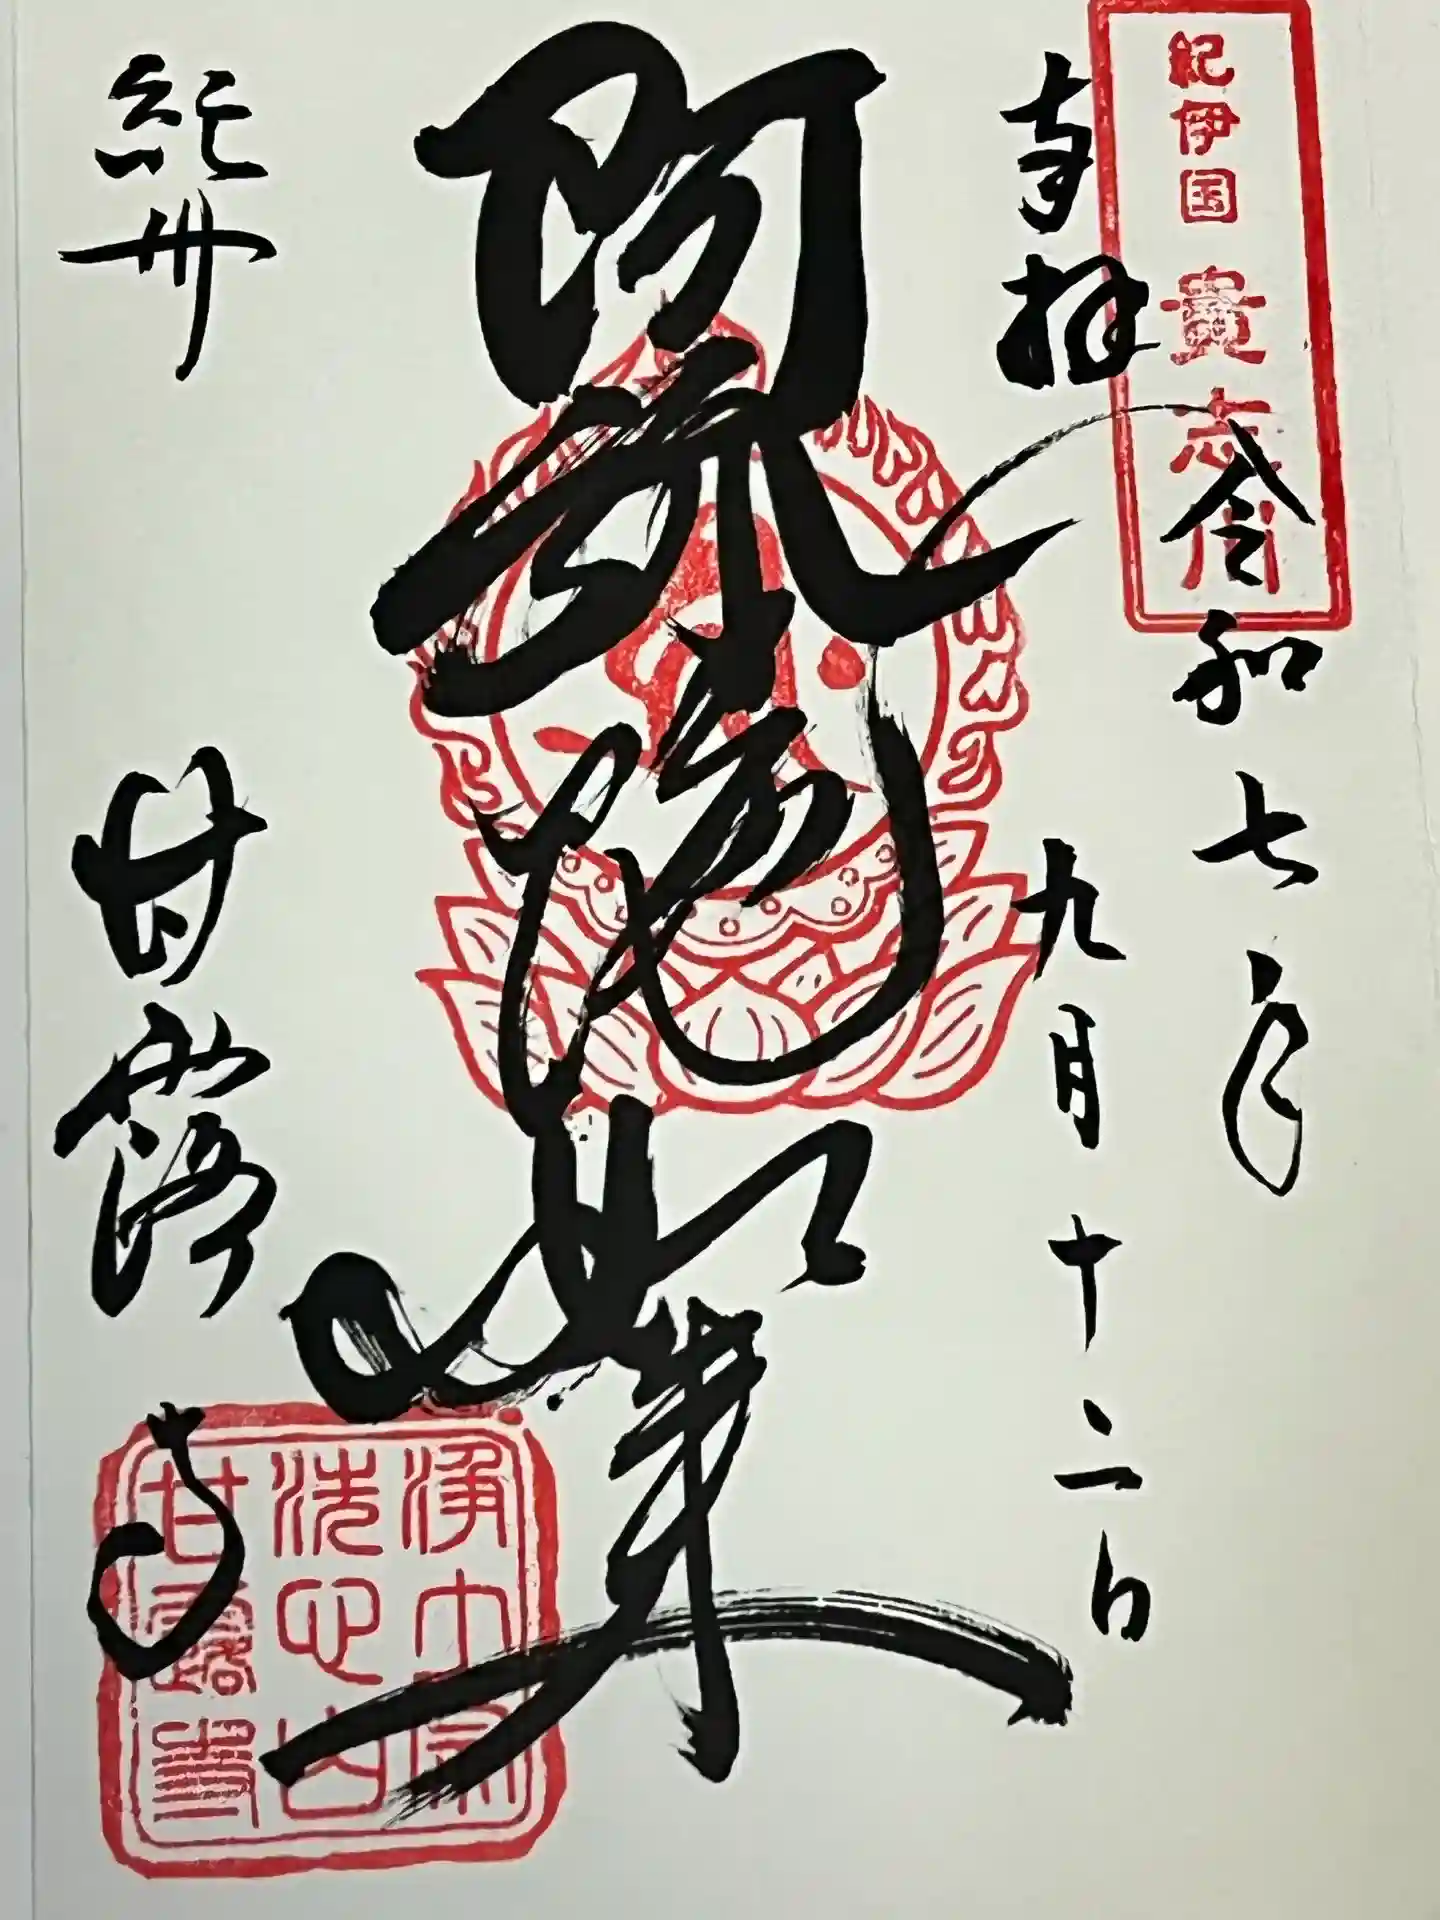 紀伊国 貴志川
奉拝
令和七年
九月十二日
阿弥陀如来
紀州 甘露寺
浄土宗
洗心山
甘露寺